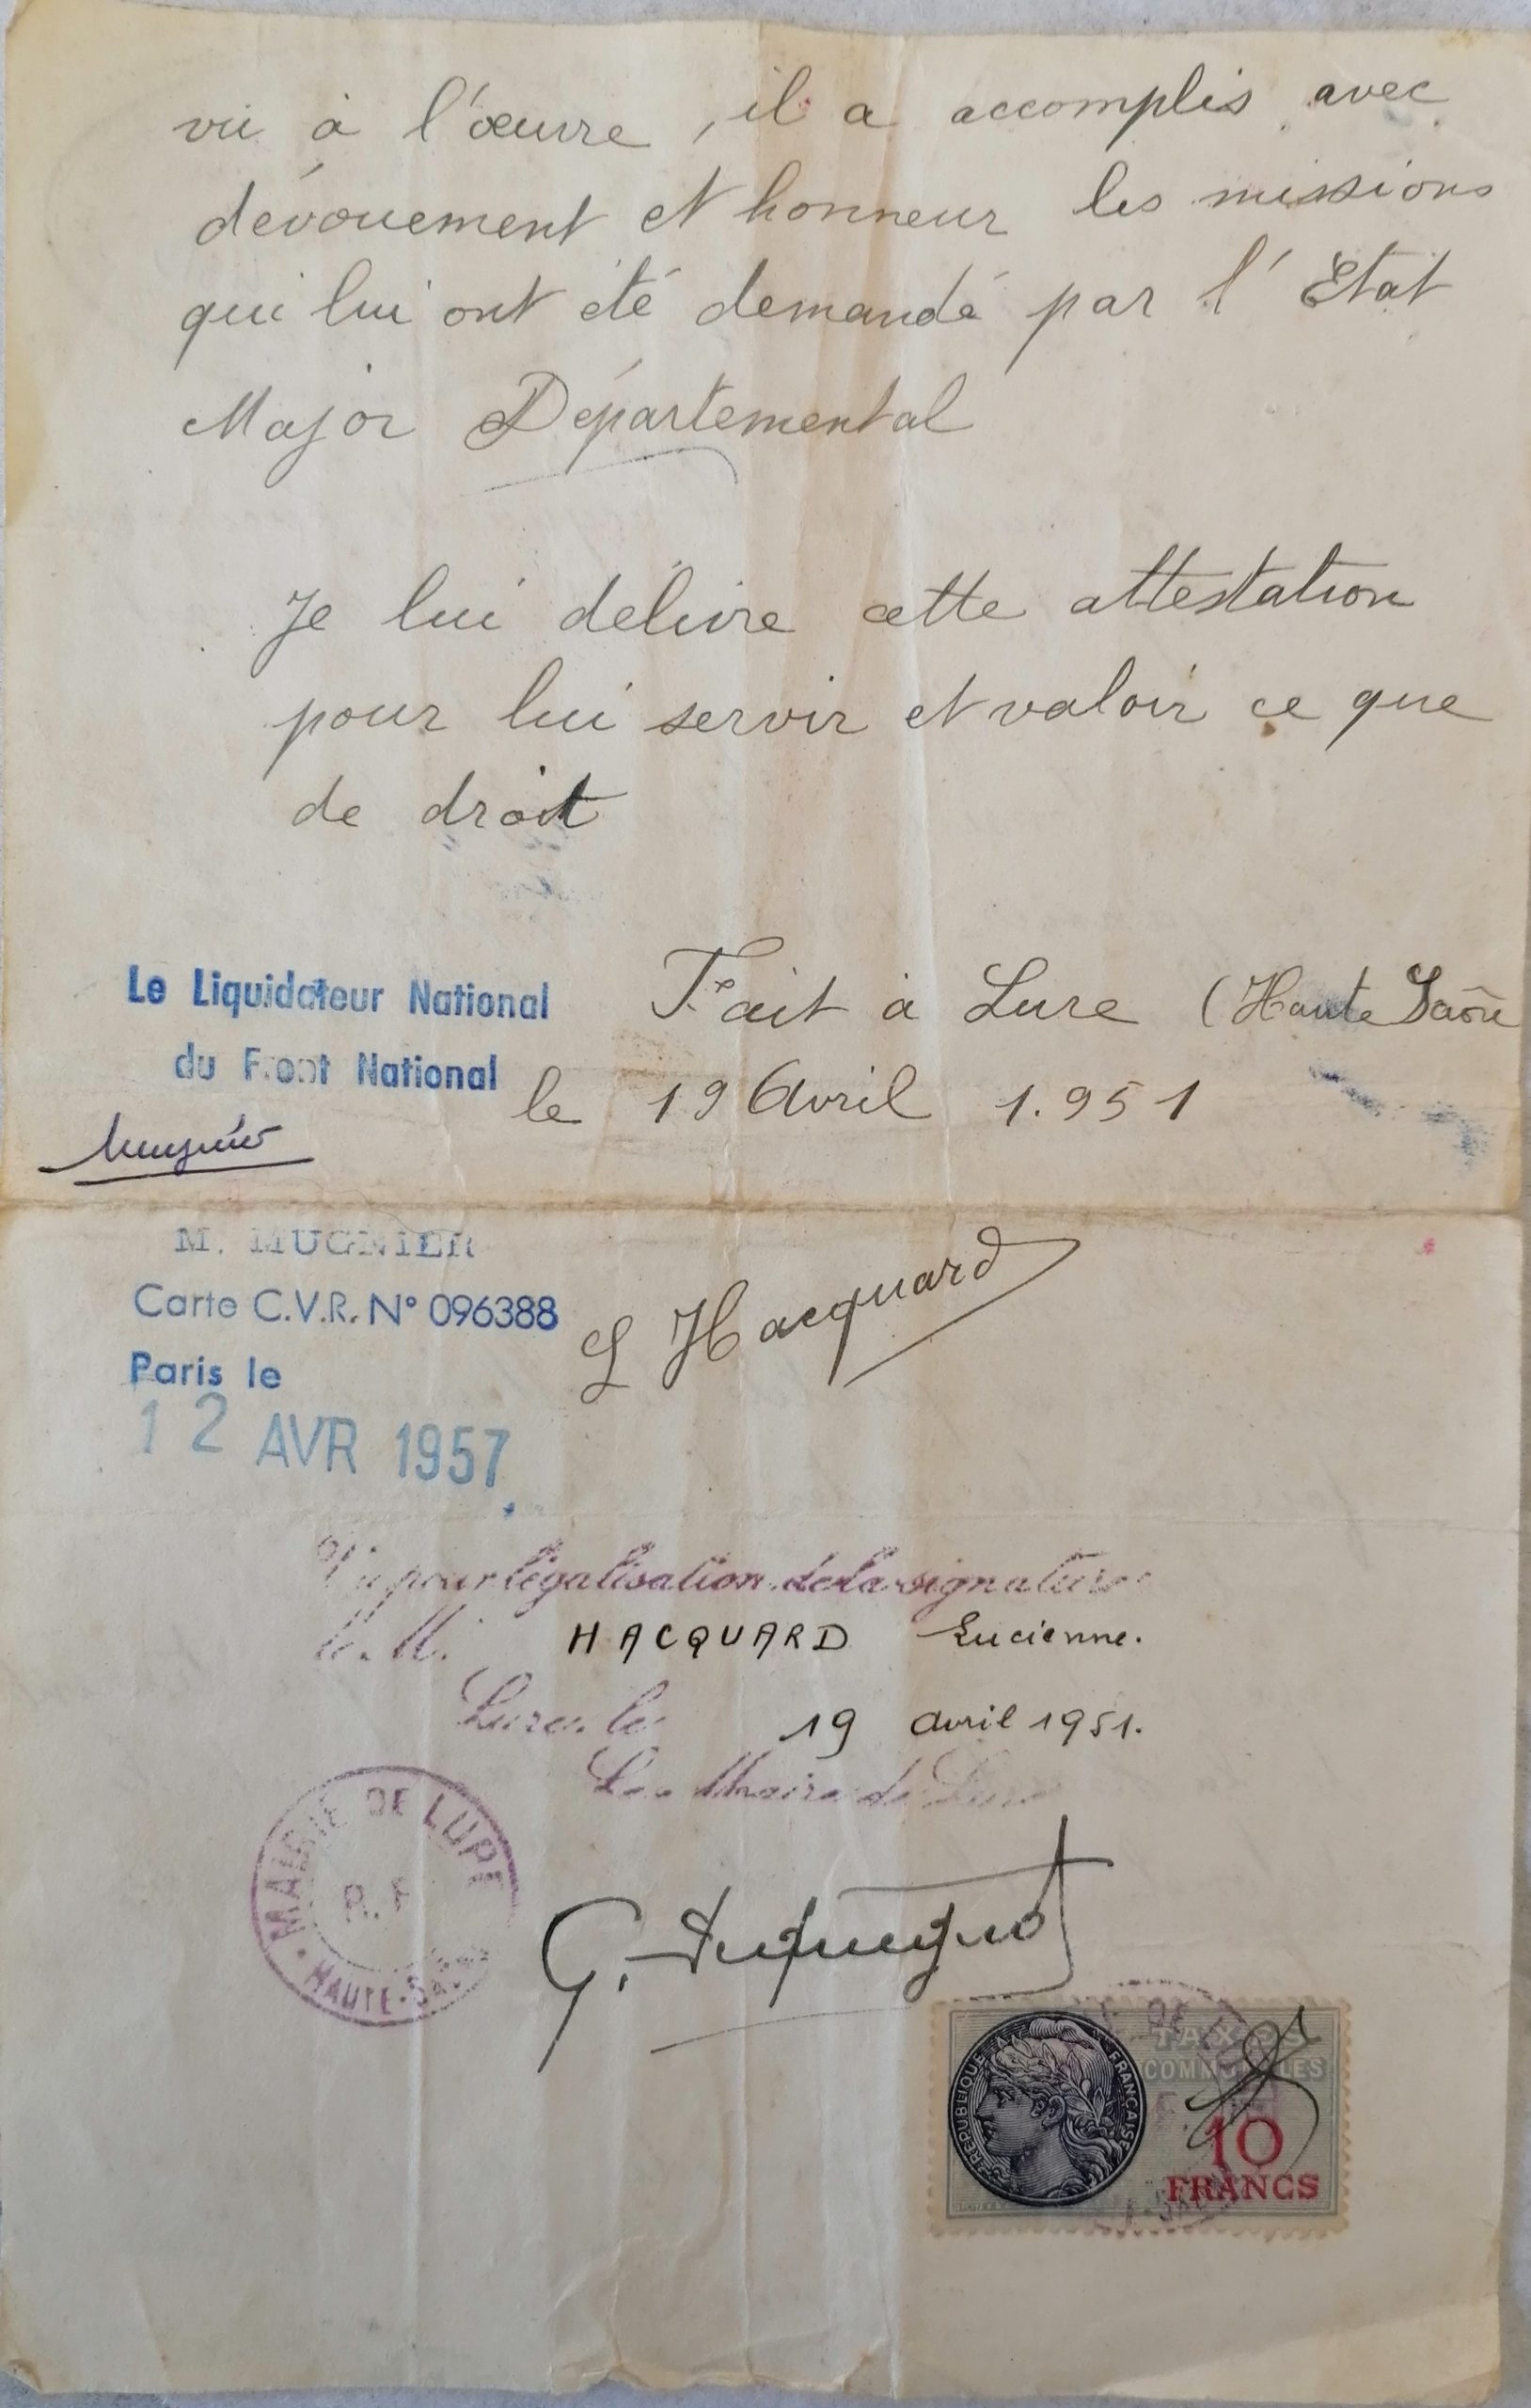 vu à l'œuvre, il a accomplis avec
dévouement et honneur les missions
qui lui ont été demandé par l'Etat
Major Départemental
Je lui délivre cette attestation
pour lui servir et valoir ce que
de droit
Le Liquidateur National
du Front National
Fait à Lure (Haute Saône
le 19 Avril 1.951
Mugnier
M. MUGNIER
Carte C.V.R. N° 096388
Paris le
12 AVR 1957
L Hacquard
Vu pour légalisation de la signature
de M. HACQUARD Lucienne.
Lure, le 19 avril 1951.
Le Maire de Lure
MAIRIE DE LURE
HAUTE-SAÔNE
REPUBLIQUE FRANÇAISE
TAXES
COMMUNALES
10
FRANCS